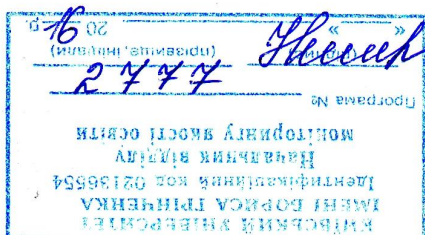 КИЇВСЬКИЙ УНІВЕРСИТЕТ
ІМЕНІ БОРИСА ГРІНЧЕНКА
Ідентифікаційний код 02136554
Начальник відділу
моніторингу якості освіти
Програма №
2777
(прізвище, ініціали)
« » 20 16 р.